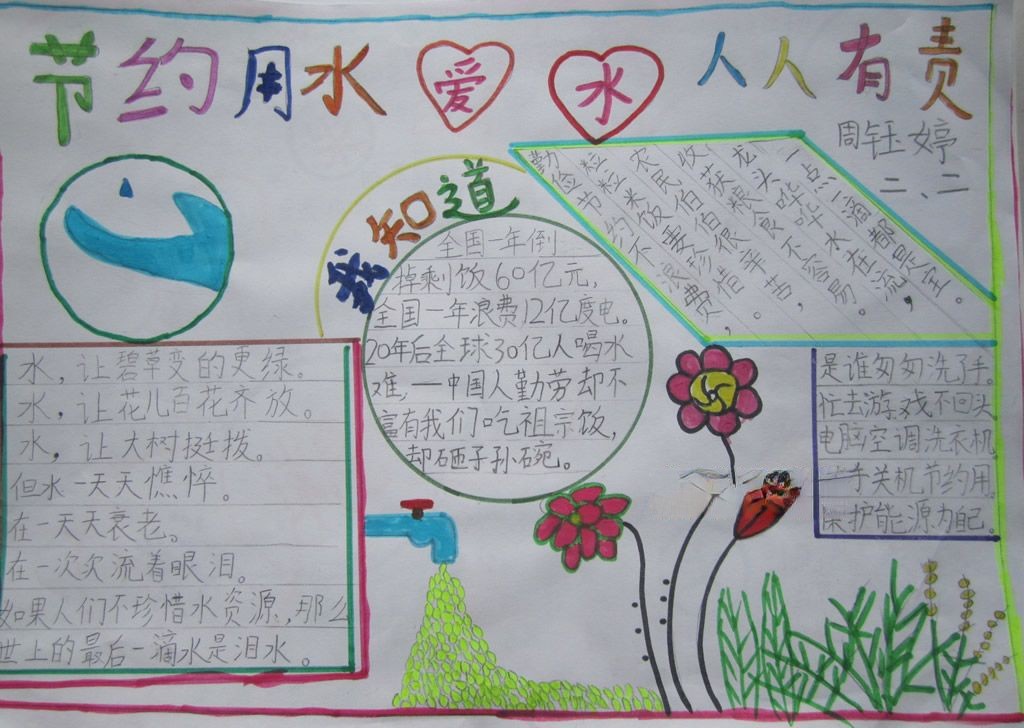 节约用水 爱水 人人有责
周钰婷
二、二
我知道
全国一年倒
掉剩饭60亿元,
全国一年浪费12亿度电。
20年后全球30亿人喝水
难,一中国人勤劳却不
富有我们吃祖宗饭,
却砸子孙碗。
勤俭节约不浪费,
粒粒米饭要珍惜。
农民伯伯很辛苦,
收获粮食不容易。
龙头哗哗水在流,
一点一滴都是
水,让碧草变的更绿。
水,让花儿百花齐放。
水,让大树挺拨。
但水一天天憔悴。
在一天天衰老。
在一次次流着眼泪。
如果人们不珍惜水资源,那么
世上的最后一滴水是泪水。
是谁匆匆洗了手。
忙去游戏不回头
电脑空调洗衣机
一手关机节约用。
保护能源